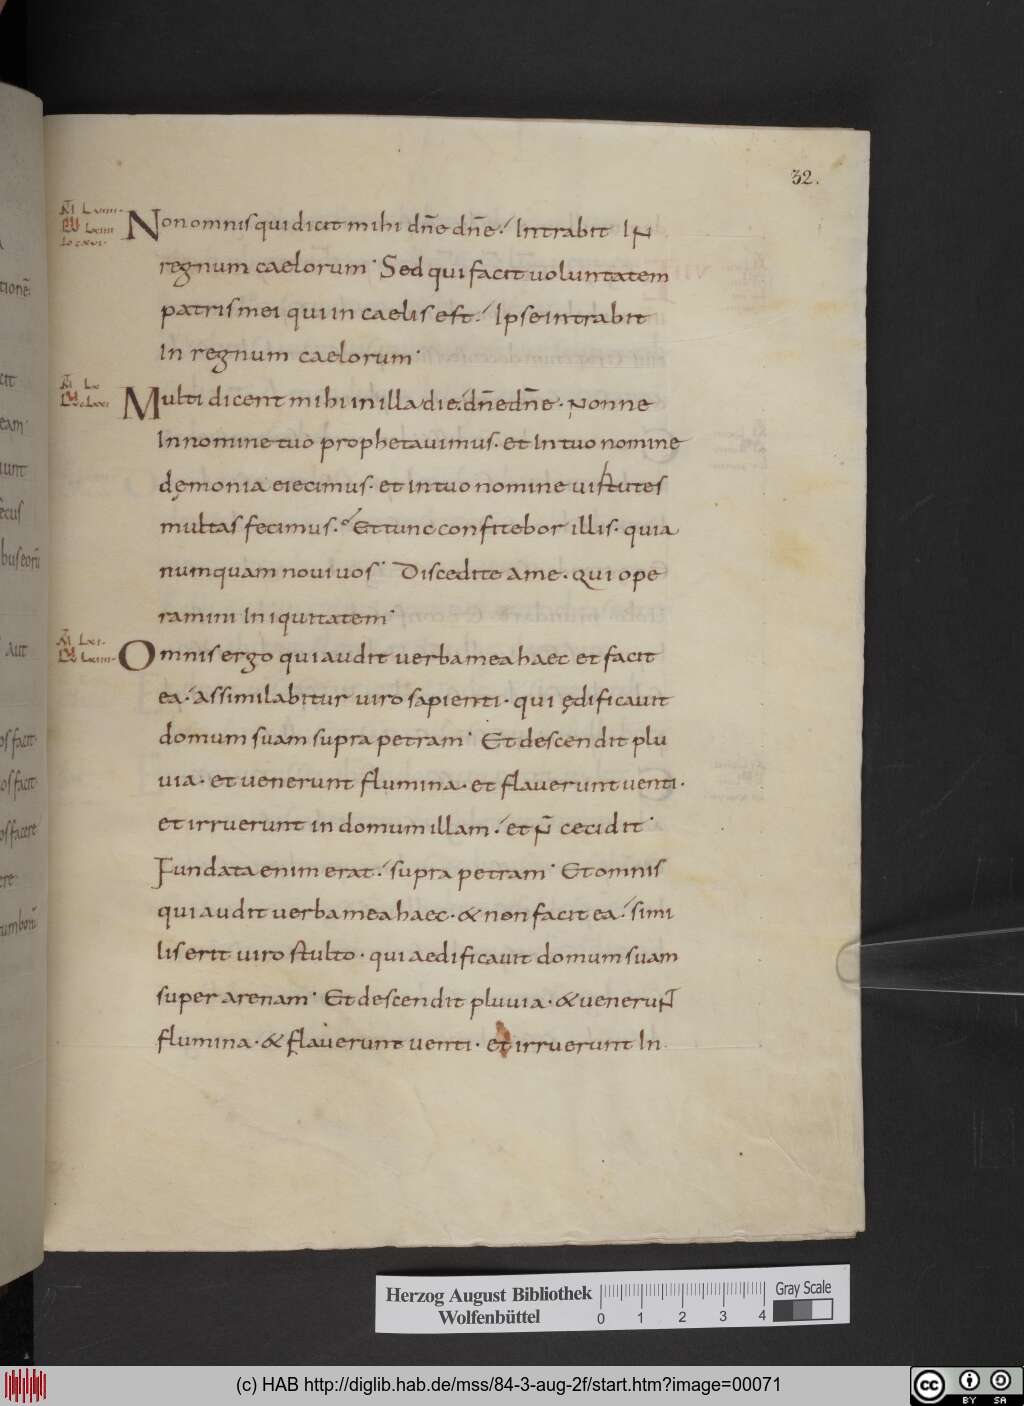 32.
Non omnis qui dicit mihi dn̄e dn̄e. Intrabit IN
regnum caelorum. Sed qui facit uoluntatem
patris mei qui in caelis est. Ipse intrabit
in regnum caelorum.
Multi dicent mihi in illa die. dn̄e dn̄e. Nonne
in nomine tuo prophetauimus. et in tuo nomine
dęmonia eiecimus. et in tuo nomine uirtutes
multas fecimus. Et tunc confitebor illis. quia
numquam noui uos. Discedite a me. qui ope
ramini iniquitatem.
Omnis ergo qui audit uerba mea haec et facit
ea. assimilabitur uiro sapienti. qui ędificauit
domum suam supra petram. Et descendit plu
uia. et uenerunt flumina. et flauerunt uenti.
et irruerunt in domum illam. et N̄ cecidit.
Fundata enim erat. supra petram. Et omnis
qui audit uerba mea haec. & non facit ea. simi
lis erit uiro stulto. qui aedificauit domum suam
super arenam. Et descendit pluuia. & ueneruNT
flumina. & flauerunt uenti. et irruerunt in
Herzog August Bibliothek
Wolfenbüttel
0 1 2 3 4
Gray Scale
(c) HAB http://diglib.hab.de/mss/84-3-aug-2f/start.htm?image=00071
cc BY SA